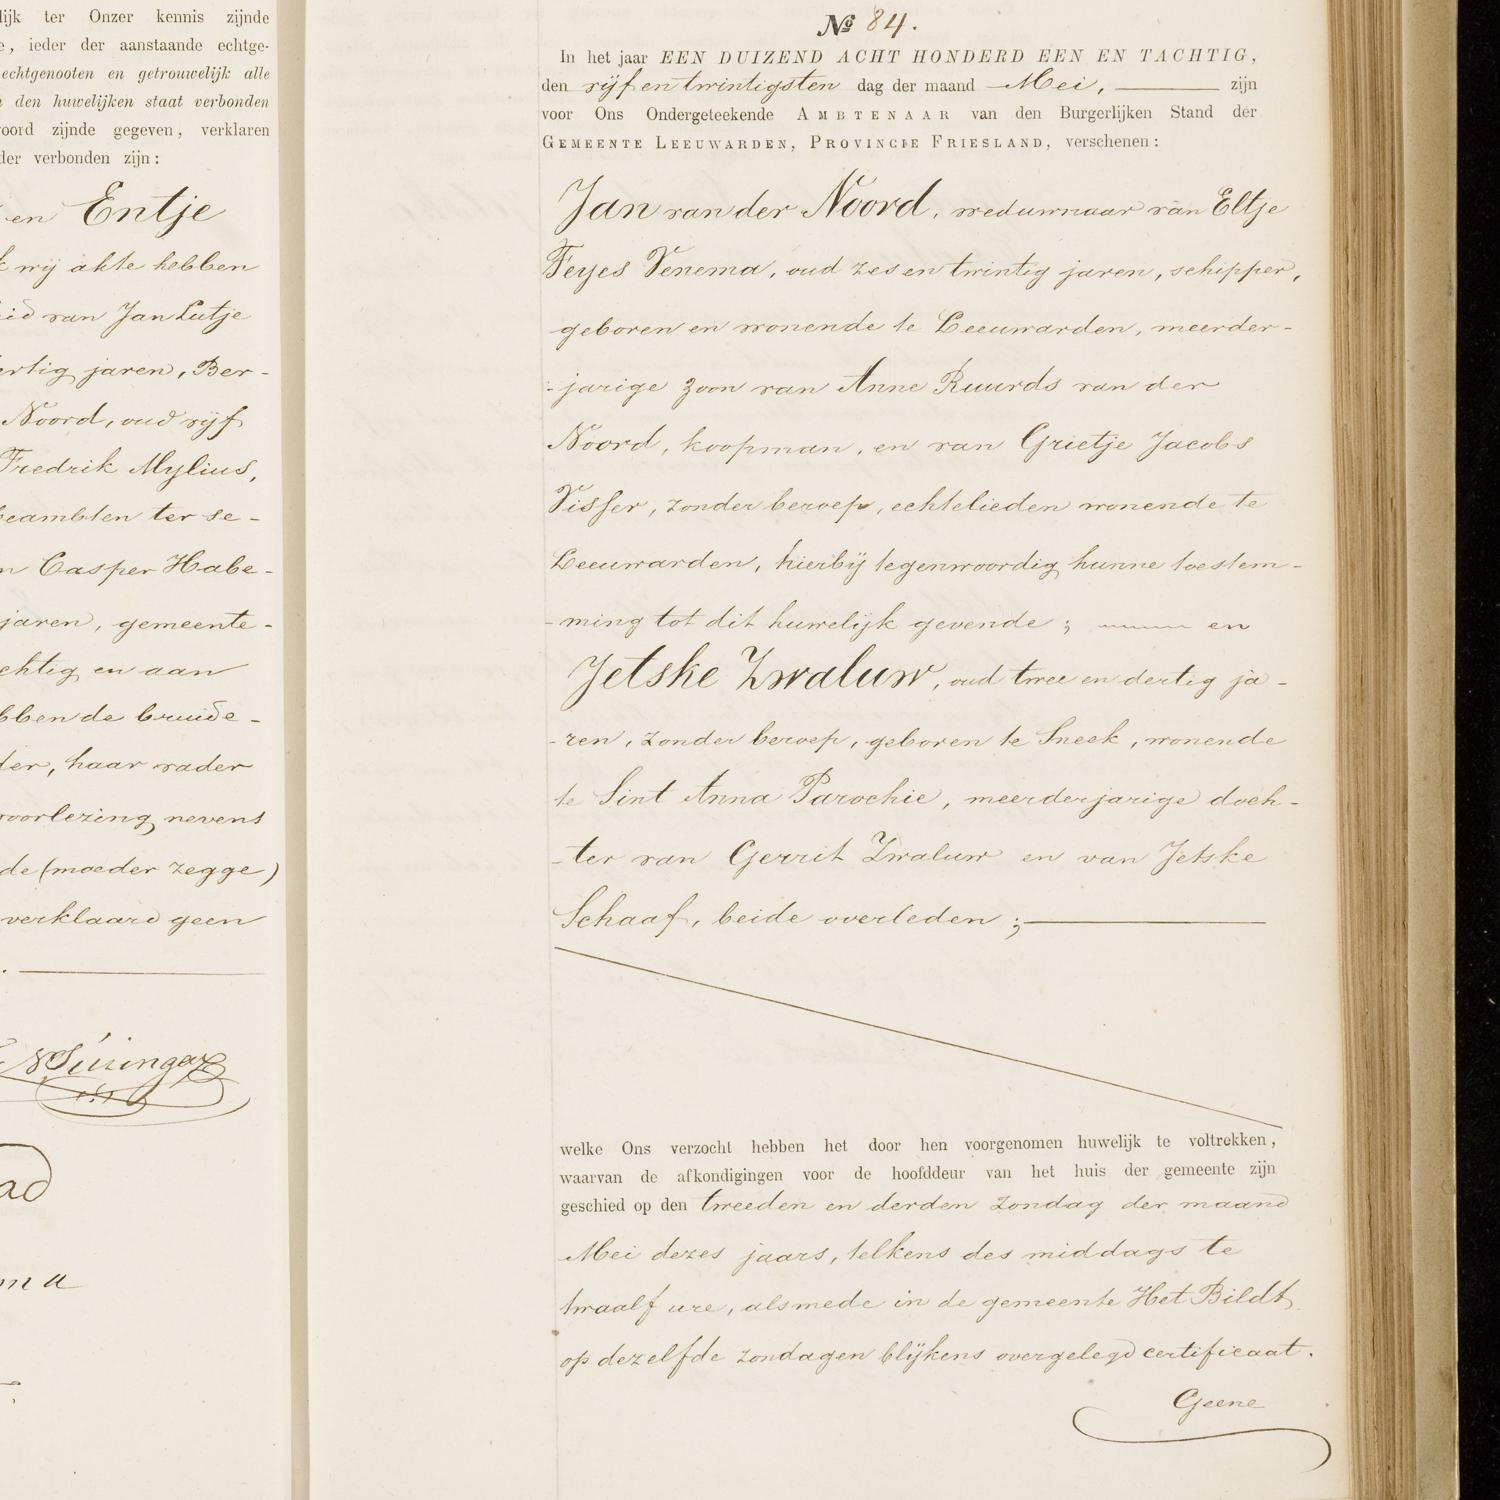 lijk ter Onzer kennis zijnde
e, ieder der aanstaande echtge-
echtgenooten en getrouwelijk alle
n den huwelijken staat verbonden
woord zijnde gegeven, verklaren
der verbonden zijn:
en Entje
k wij akte hebben
eid van Jan Lutje
ertig jaren, Ber-
Noord, oud vijf
Fredrik Mylius,
beambten ter se-
n Casper Habe-
jaren, gemeente-
chtig en aan
bbende bruide-
der, haar vader
voorlezing nevens
de (moeder zegge)
verklaard geen
ad
ma
№ 84.
In het jaar EEN DUIZEND ACHT HONDERD EEN EN TACHTIG,
den vijf en twintigsten dag der maand Mei, zijn
voor Ons Ondergeteekende AMBTENAAR van den Burgerlijken Stand der
GEMEENTE LEEUWARDEN, PROVINCIE FRIESLAND, verschenen:
Jan van der Noord, weduwnaar van Eltje
Feyes Venema, oud zes en twintig jaren, schipper,
geboren en wonende te Leeuwarden, meerder-
-jarige zoon van Anne Ruurds van der
Noord, koopman, en van Grietje Jacobs
Visser, zonder beroep, echtelieden wonende te
Leeuwarden, hierbij tegenwoordig hunne toestem-
-ming tot dit huwelijk gevende; en
Jetske Zwaluw, oud twee en dertig ja-
-ren, zonder beroep, geboren te Sneek, wonende
te Sint Anna Parochie, meerderjarige doch-
-ter van Gerrit Zwaluw en van Jetske
Schaaf, beide overleden;
welke Ons verzocht hebben het door hen voorgenomen huwelijk te voltrekken,
waarvan de afkondigingen voor de hoofddeur van het huis der gemeente zijn
geschied op den tweeden en derden Zondag der maand
Mei dezes jaars, telkens des middags te
twaalf ure, alsmede in de gemeente Het Bildt
op dezelfde zondagen blijkens overgelegd certificaat.
Geene